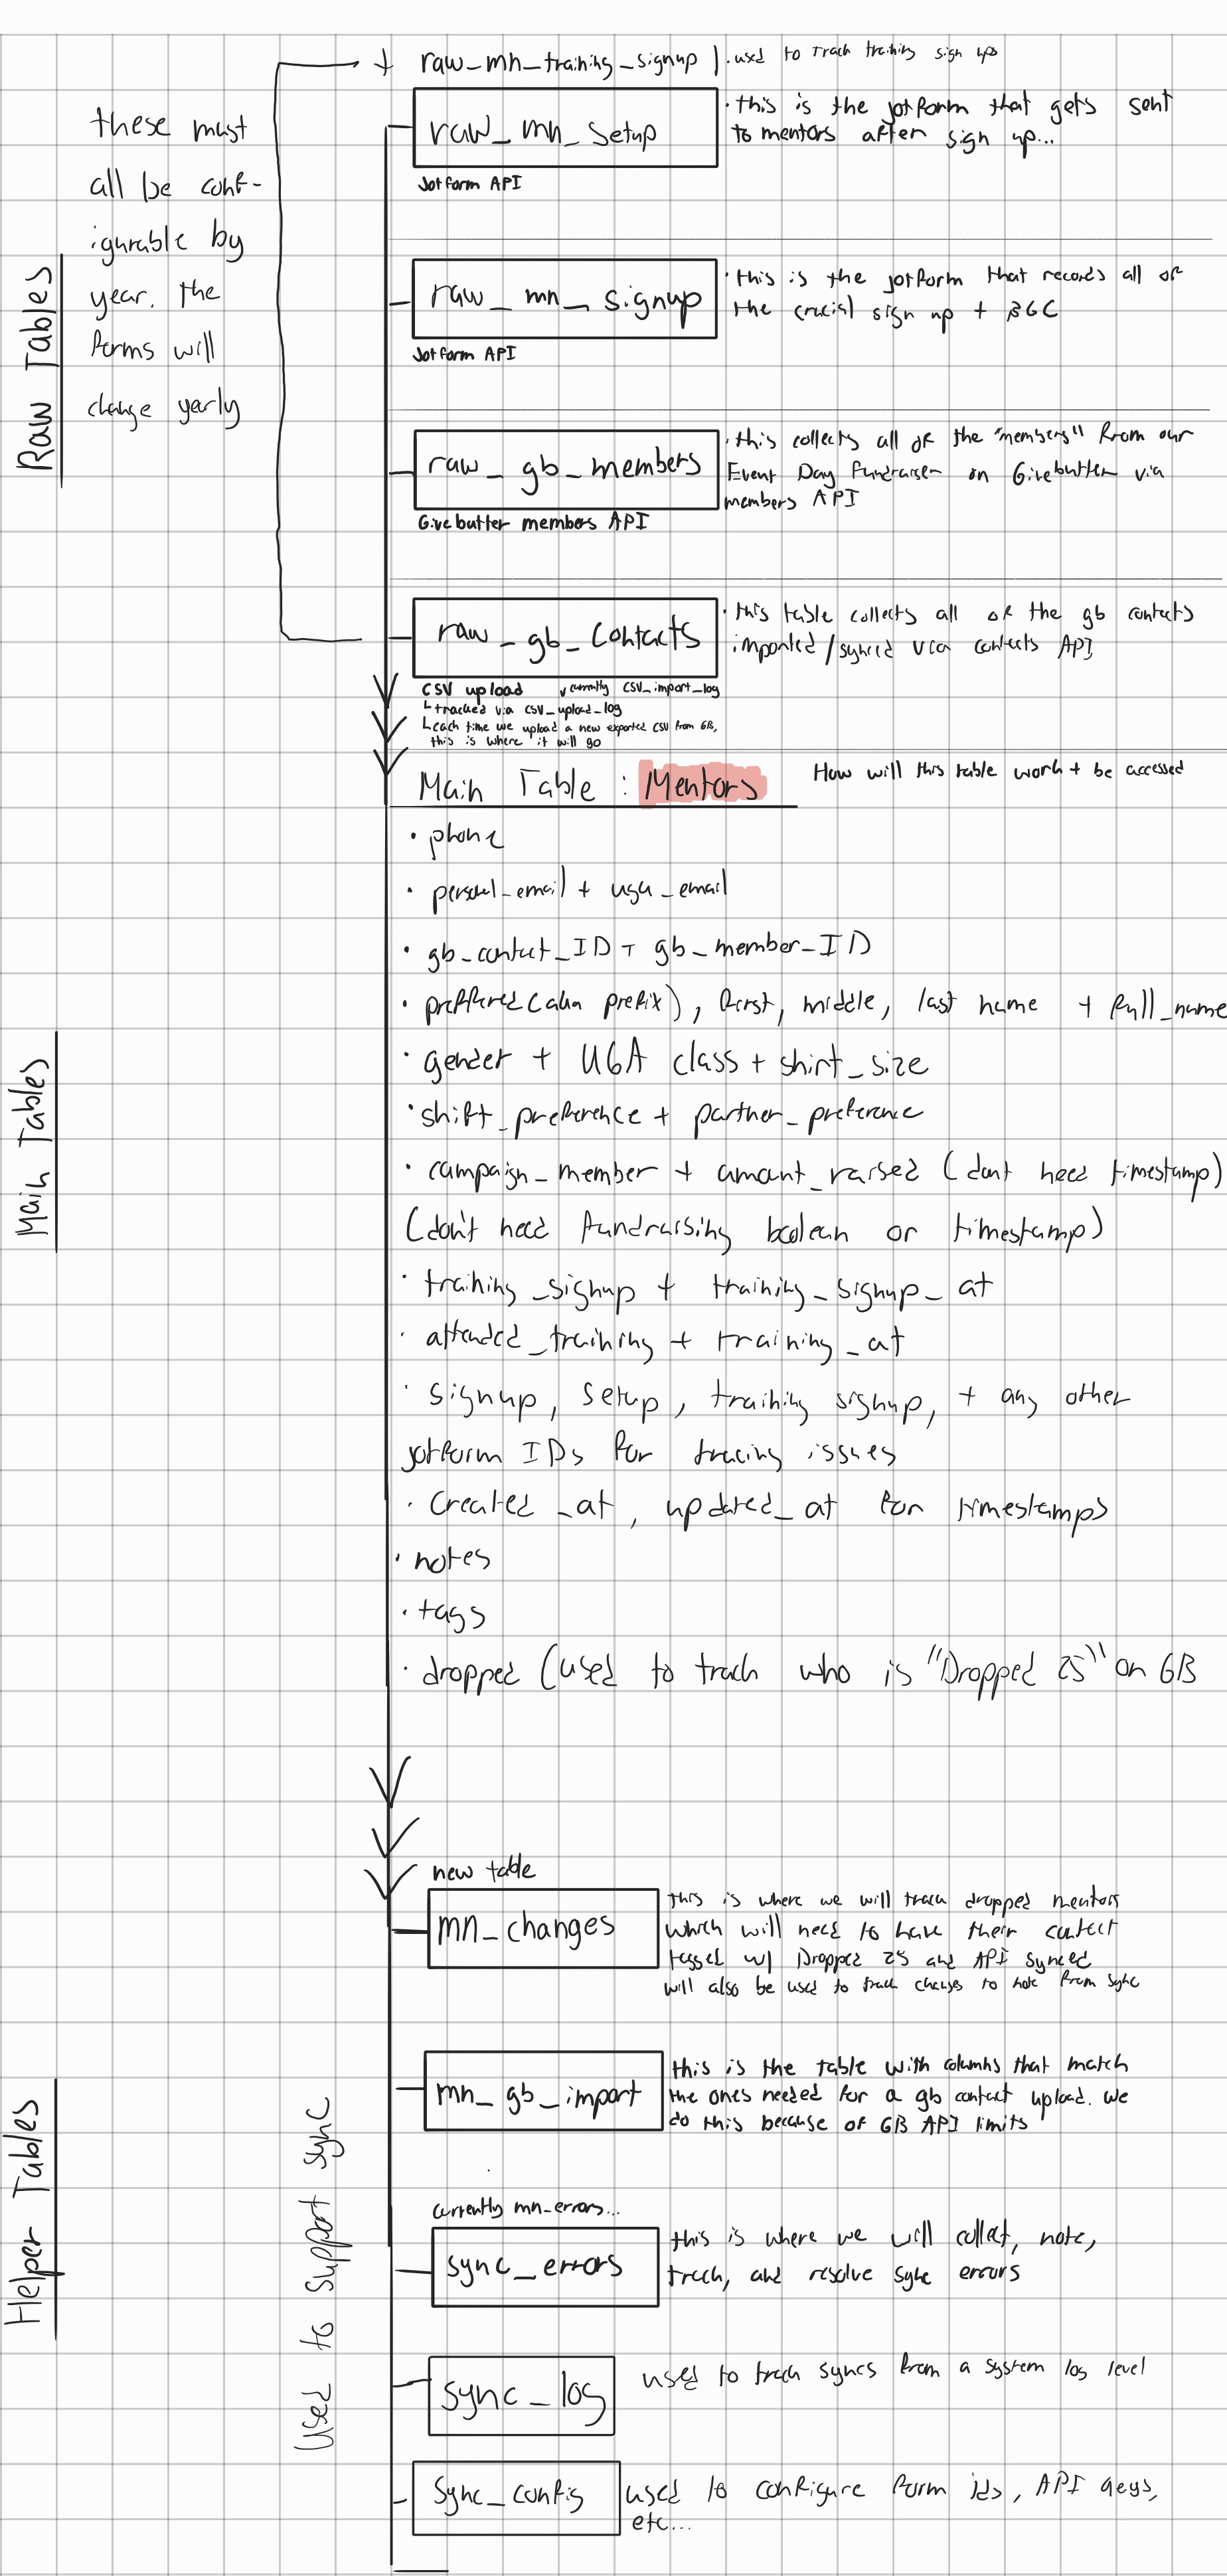 + raw_mn_training_signup ) . used to track training sign ups
these must
all be conf-
igurable by
year. the
forms will
change yearly
Raw Tables
raw_mn_setup
· this is the jotform that gets sent
to mentors after sign up...
Jotform API
raw_mn_signup
· this is the jotform that records all of
the crucial sign up + BGC
Jotform API
raw_gb_members
· this collects all of the "members" from our
Event Day fundraiser on Givebutter via
members API
Givebutter members API
raw_gb_contacts
· this table collects all of the gb contacts
imported/synced via contacts API
CSV upload
currently CSV_import_log
tracked via CSV_upload_log
each time we upload a new exported CSV from GB,
this is where it will go
Main Table : Mentors
How will this table work + be accessed
Main Tables
· phone
· personal_email + uga_email
· gb_contact_ID + gb_member_ID
· preffered (aka prefix), first, middle, last name + full_name
· gender + UGA class + shirt_size
· shift_preference + partner_preference
· campaign_member + amount_raised (dont need timestamp)
(don't need fundraising boolean or timestamp)
· training_signup + training_signup_at
· attended_training + training_at
· signup, setup, training signup, + any other
jotform IDs for tracing issues
· created_at, updated_at for timestamps
· notes
· tags
· dropped (used to track who is "Dropped 25") on GB
Helper Tables
used to support sync
new table
mn_changes
this is where we will track dropped mentors
which will need to have their contact
tagged w/ Dropped 25 and API synced
will also be used to track changes to note from sync
mn_gb_import
this is the table with columns that match
the ones needed for a gb contact upload. we
do this because of GB API limits
currently mn_errors...
sync_errors
this is where we will collect, note,
track, and resolve sync errors
sync_log
used to track syncs from a system log level
sync_config
used to configure form ids, API qeys,
etc...